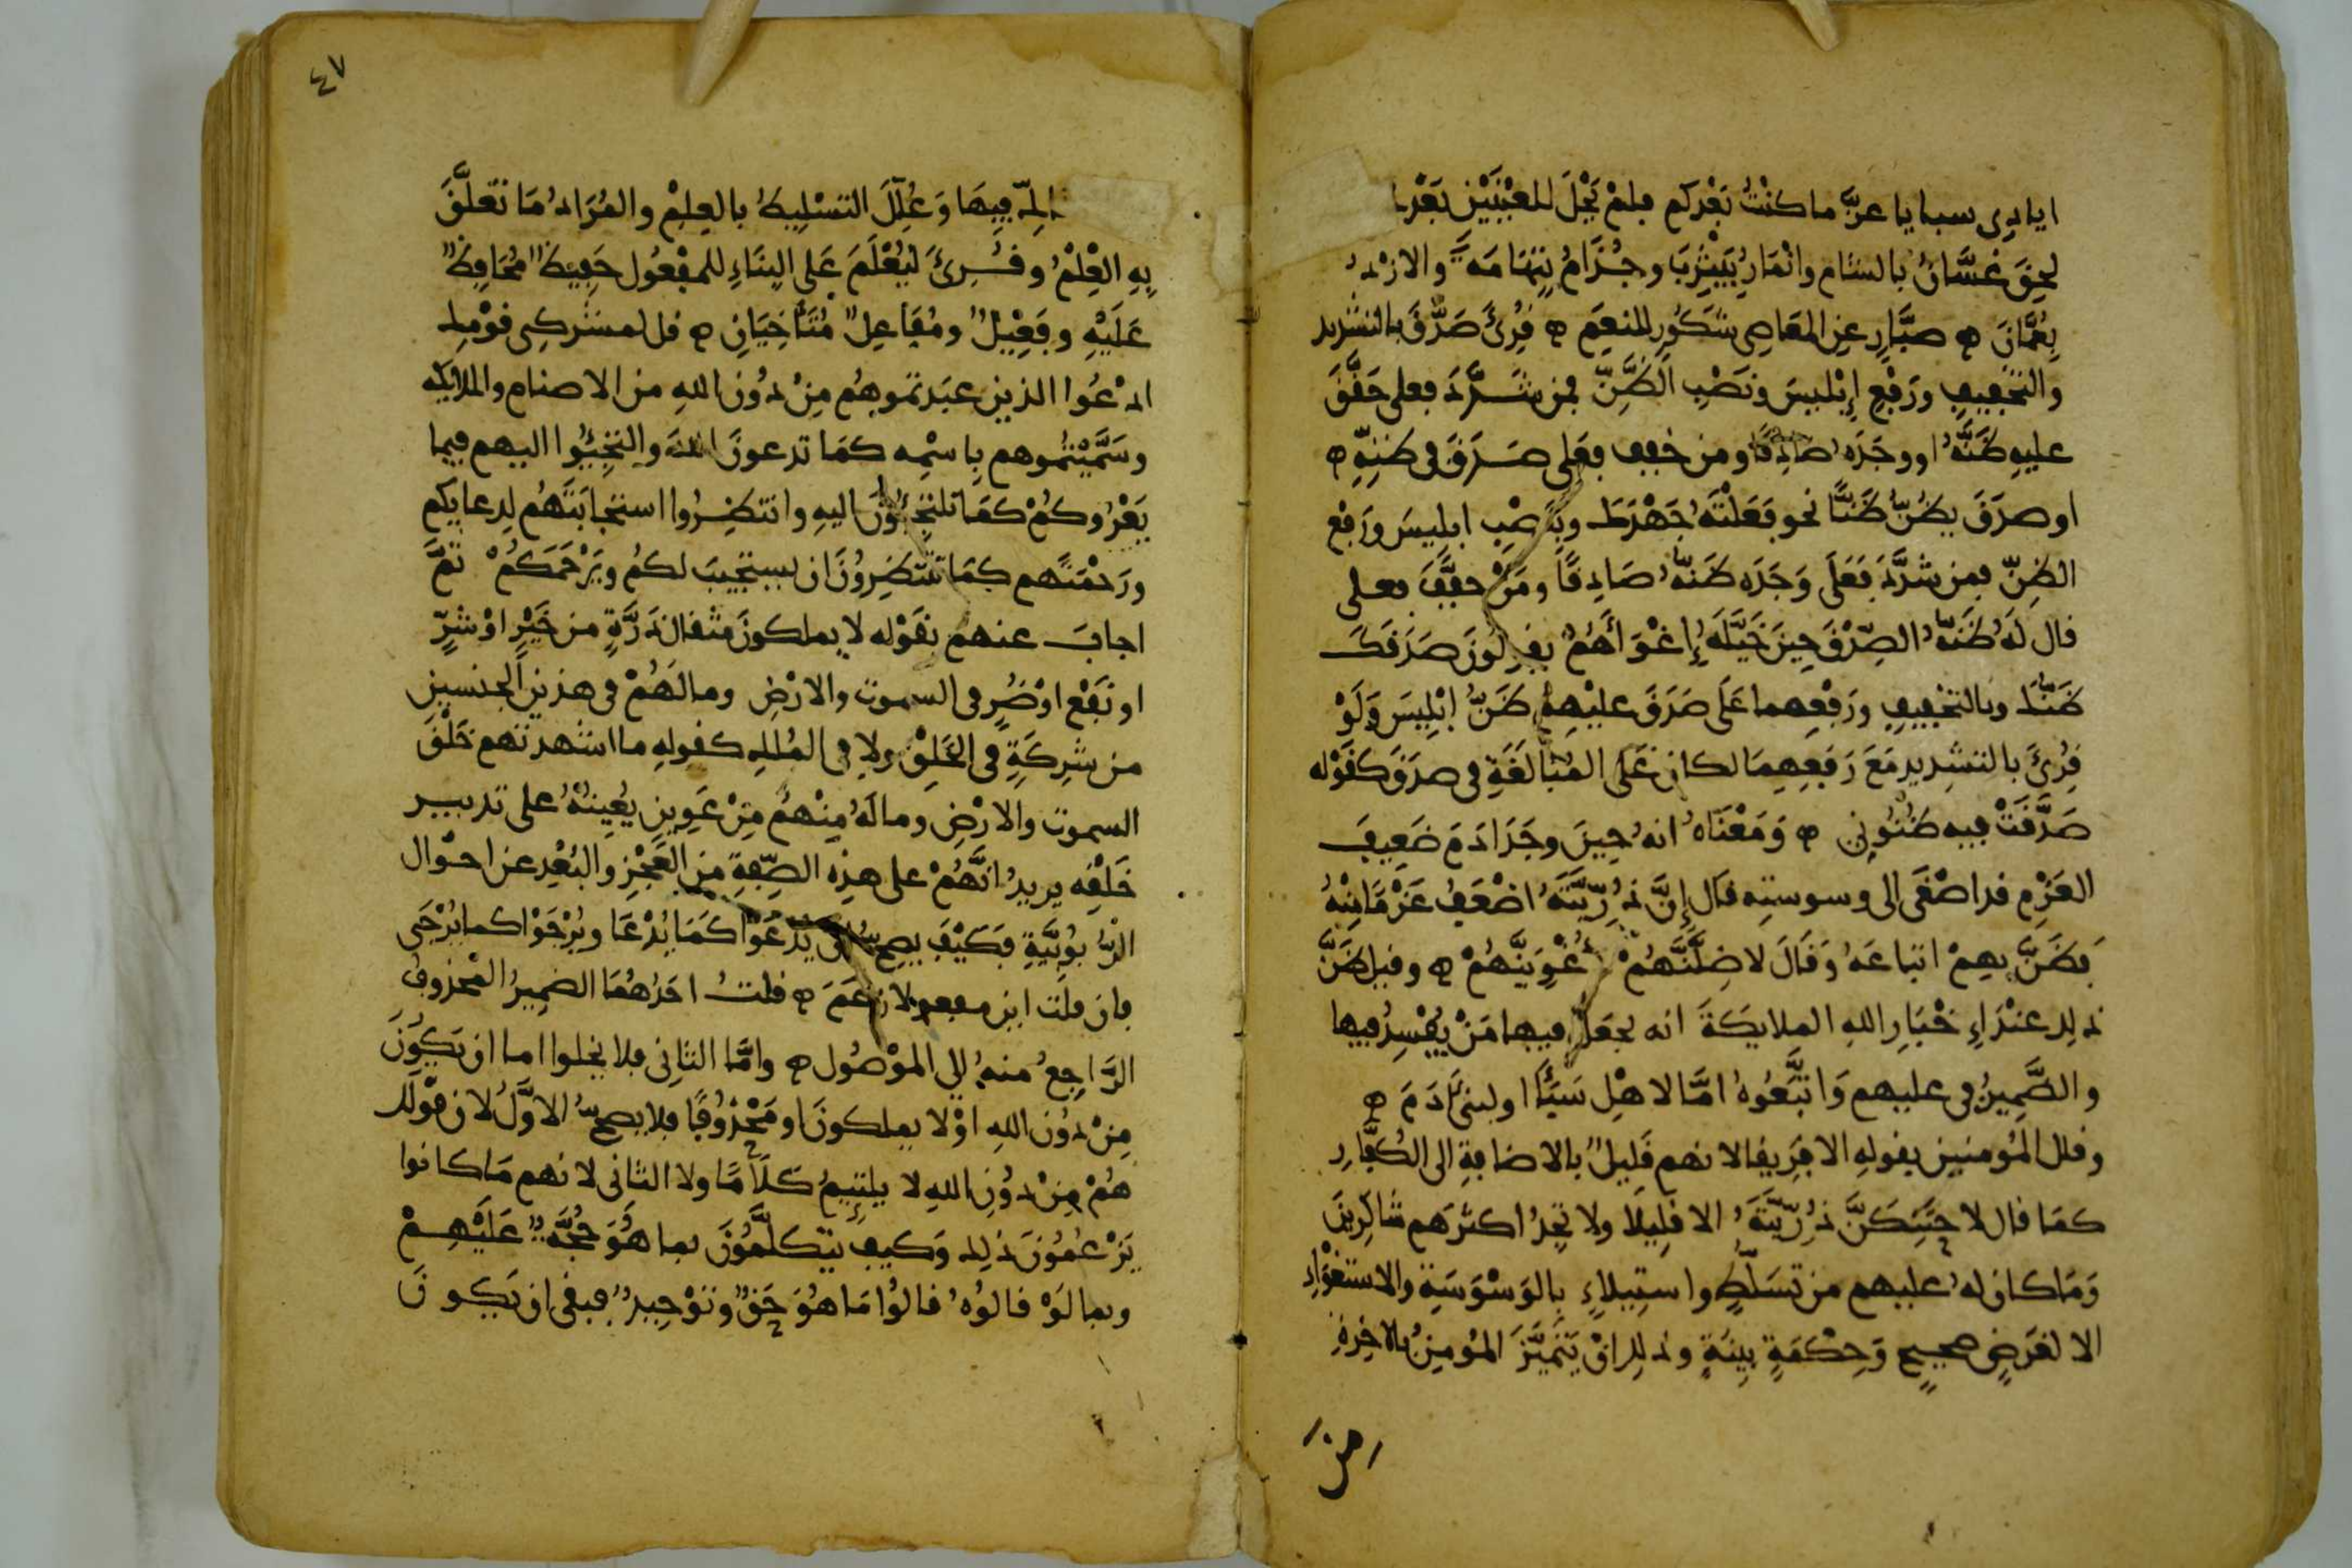 ايادى سبا يا عزّ ما كنتُ بَعْدكم فلمْ يَحْلَ للعَيْنَيْن بَعْدَ
لحِقَ غسَّانُ بالشام وانْمَارُ بِيَثْرِبَ وجُذَامُ بِتِهَامَة والازْدُ
بِعُمَانَ ۞ صبَّارٍ عنِ المَعَاصِى شَكُورٍ للنعَمِ ۞ قُرِئَ صَدَّقَ بالتشديد
والتّخْفِيفِ ورَفْعِ إبْليسَ ونَصْبِ الظَّنِّ فمن شَدَّدَ فعلى حَقَّقَ
عليهِ ظَنَّهُ او وجَدَه صَادِقًا ومن خفف فعَلى صَدَقَ فى ظنِّهِ ۞
او صدَقَ يظُنُّ ظَنًّا نحو فَعَلْتَهُ جَهْدَكَ وبنَصْبِ ابليسَ ورَفْعِ
الظنِّ فمن شدَّدَ فَعَلَى وَجَدَه ظنُّهُ صَادِقًا ومَنْ خفَّفَ فعلى
قال لَهُ ظَنُّهُ الصِّدْقَ حِينَ خَيَّلَهُ إغْوَاءَهُمْ يقولونَ صَدَقَكَ
ظَنُّكَ وبالتخفِيفِ ورَفْعِهما عَلَى صَدَقَ عليْهِمْ ظَنُّ إبْلِيسَ وَلَوْ
قُرِئَ بالتشديد مَعَ رَفْعِهِمَا لكان عَلى المُبَالَغَةِ فى صدَقَ كقَوْله
صَدَّقَتْ فيه ظنُونِى ۞ وَمَعْنَاه انه حِينَ وجَدَ ادَمَ ضَعِيفَ
العَزْمِ قد اصْغَى الى وسوستِه قال إنَّ ذُرِّيَّتَهُ اضْعَفُ عَزْمًا مِنْهُ
فَظَنَّ بِهِمْ اتباعَهُ وَقَالَ لاضِلَّنَّهُمْ لأُغْوِيَنَّهُمْ ۞ وقيل ظَنَّ
ذلك عنْدَ اخْبَارِ اللهِ الملايكَةَ انه يجعَلُ فيها مَنْ يُفْسِدُ فيها
والضَّمِيرُ فى عليهم وَاتَّبَعُوهُ امَّا لاهْلِ سَبَأٍ او لبنى ءَادَمَ ۞
وقلل المُومنين بقولهِ الا فَرِيقا لانهم قَلِيلٌ بالاضافةِ الى الكُفَّارِ
كمَا قال لاحْتَنِكَنَّ ذُرِّيَّتَهُ الا قليلًا ولا تجِدُ اكثرَهم شاكِرِينَ
وَمَا كان لهُ عليهم من تسَلُّطٍ واستِيلاءٍ بالوَسْوَسَةِ والاستغْوَاءِ
الا لغَرَضٍ صحيحٍ وَحِكْمَةٍ بيِنَةٍ وذلك انْ يَتَمَيَّزَ المُومِنُ بالاخِرَةِ
من
٤٧
فِيهَا وَعُلِّلَ التسْلِيطُ بالعِلمْ والمُرَادُ مَا تَعَلَّقَ
بِهِ العِلْمُ وقُرِئَ ليُعْلَمَ عَلى البِنَاءِ للمفْعُول حَفِيظٌ مُحَافِظٌ
عَلَيْهِ وفَعِيْلٌ ومُفَاعِلٌ مُتَآخِيَانِ ۞ قل لمشركِى قوْمِك
ادْعُوا الذين عبَدتموهم مِنْ دُون اللهِ من الاصنام والملايكه
وسَمَّيْتُمُوهم بِاسْمِه كمَا تدعونَ اللهَ والتجِئُوا اليهم فيما
يَعْرُوكُمْ كمَا تلتجِئُونَ اليهِ وانتظِرُوا استجَابَتَهُم لِدعايكم
ورَحْمَتَهم كمَا تنتظِرُونَ ان يستجيبَ لكمْ ويَرْحَمَكُمْ ثمَّ
اجابَ عنهم بقَوْله لا يملكونَ مثقال ذَرَّةٍ من خَيْرٍ اوْ شرٍّ
او نَفْع اوْ ضُرٍّ فى السموت والارْضِ وما لَهُمْ فى هذين الجنسين
من شِركَةٍ فى الخَلْقِ ولا فى المُلْكِ كقولهِ ما اشْهدتّهم خَلْقَ
السموت والارْضِ وما لَهُ مِنْهُمْ مِنْ عَوِينٍ يُعِينُهُ على تدبير
خَلْقِه يريدُ انَّهُمْ على هذِه الصِّفةِ من العَجْزِ والبُعْدِ عن احْوَال
الرُّبُوبِيَّةِ فكَيْفَ يصِحُّ ان يُدْعَوْا كمَا يُدْعَا ويُرْجَوْا كما يُرْجَى
فان قلتَ اين مفعولا زَعَمَ ۞ قلتُ احَدُهُمَا الضمِيرُ المحذوفُ
الرَّاجِعُ منهُ الى المَوْصُول ۞ وامَّا الثانِى فلا يخلوا اما ان يَكُونَ
مِنْ دُون اللهِ اوْ لا يملكونَ او مَحْذُوفًا فلا يصحُّ الاوَّلُ لان قوْلك
هُمْ مِنْ دُونِ اللهِ لا يلتئِمُ كلَامًا ولا الثانى لانهم مَا كانوا
يَزْعُمُونَ ذلك وَكيف يتكلَّمُونَ بما هُوَ حُجَّةٌ عَلَيْهِمْ
وبما لَوْ قالوُهُ قالوُا مَا هُوَ حَقٌّ وتوْحِيدٌ فبقى ان يَكُونَ